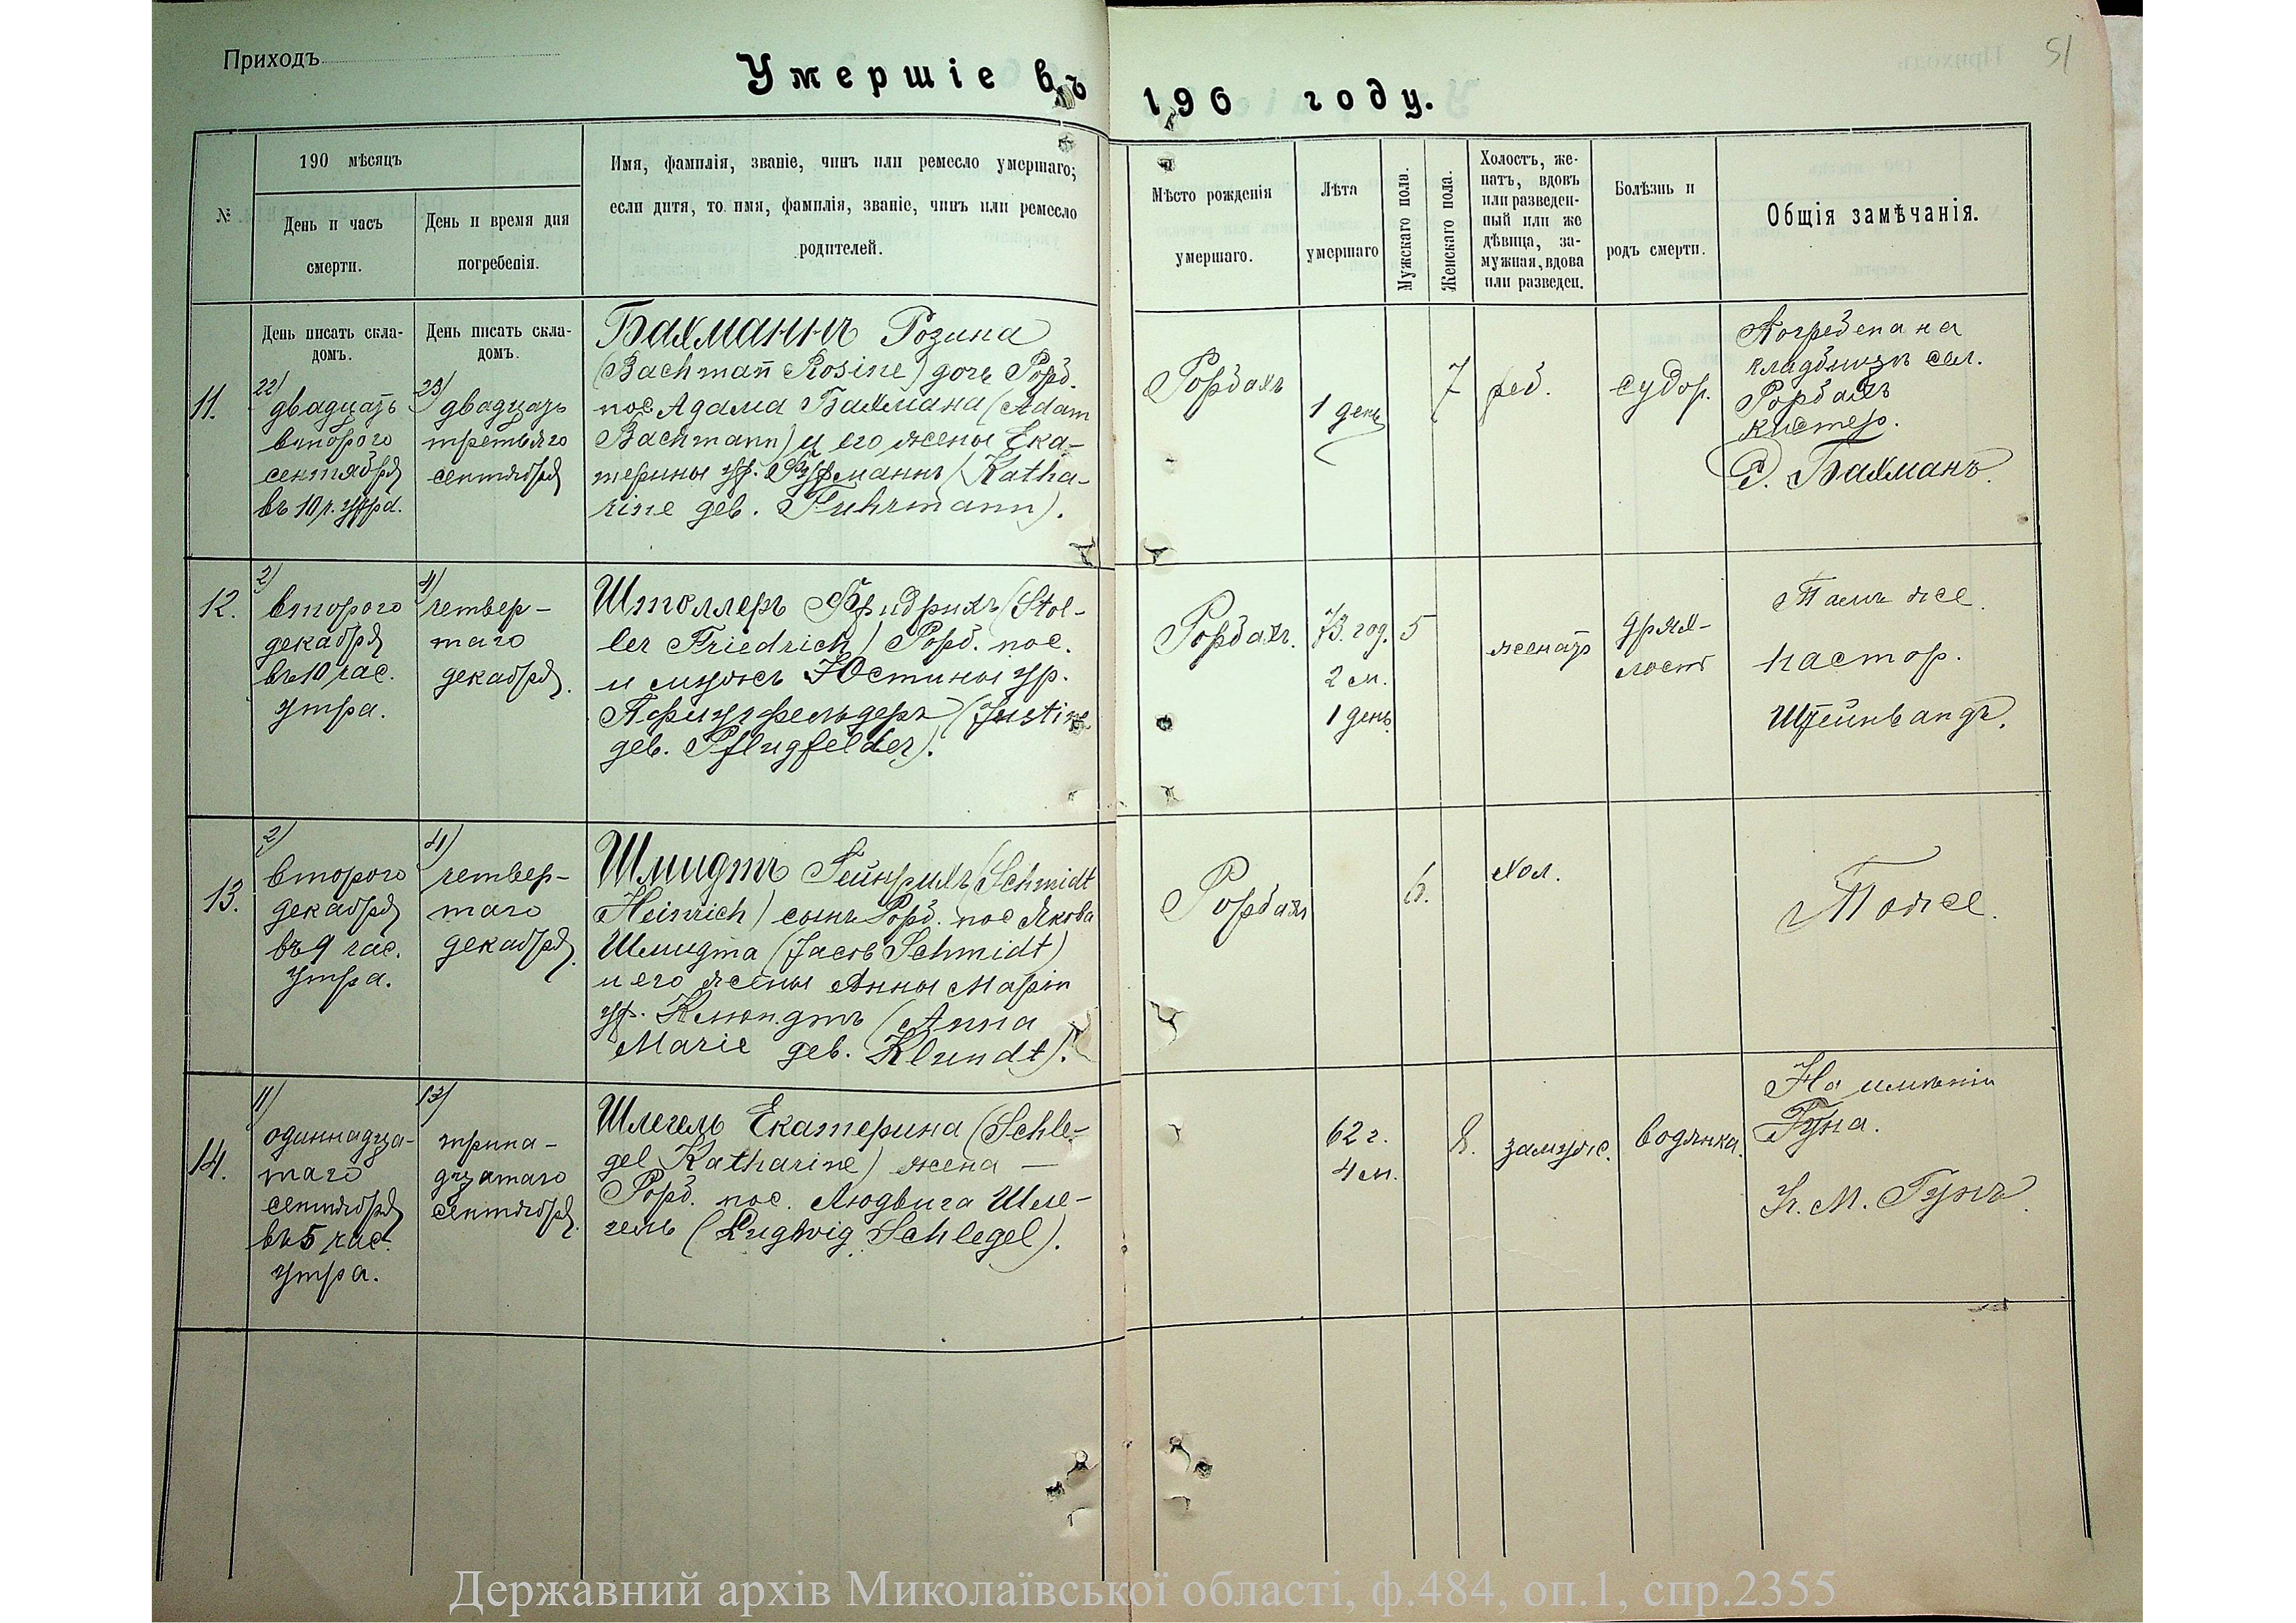 Приходъ
51
Умершіе въ 190 году.
№
190 мѣсяцъ
День и часъ
смерти.
День и время дня
погребенія.
Имя, фамилія, званіе, чинъ или ремесло умершаго;
если дитя, то имя, фамилія, званіе, чинъ или ремесло
родителей.
Мѣсто рожденія
умершаго.
Лѣта
умершаго
Мужскаго пола.
Женскаго пола.
Холостъ, же-
натъ, вдовъ
или разведен-
ный или же
дѣвица, за-
мужняя, вдова
или разведен.
Болѣзнь и
родъ смерти.
Общія замѣчанія.
День писать скла-
домъ.
День писать скла-
домъ.
11.
22)
двадцать
второго
сентября
въ 10 ч. утра.
23)
двадцать
третьяго
сентября
Бахманнъ Розина
(Bachmann Rosine) дочь Рорб.
пос Адама Бахмана (Adam
Bachmann) и его жены Ека-
терины ур. Фурманнъ (Katha-
rine geb. Fuhrmann).
Рорбахъ
1 день
7
реб.
судор.
Погребена на
кладбищѣ сел.
Рорбахъ
кистер.
Бахманъ
12.
2)
второго
декабря
въ 10 час.
утра.
4)
четвер-
таго
декабря.
Штоллеръ Фридрихъ (Stol-
ler Friedrich) Рорб. пос.
и мужъ Юстины ур.
Пфлугфельдеръ (Justine
geb. Pflugfelder).
Рорбахъ.
73. год.
2 м.
1 день.
5
женатъ
дрях-
лость
Тамъ же.
пастор.
Штейнвандъ.
13.
2)
второго
декабря
въ 9 час.
утра.
4)
четвер-
таго
декабря.
Шмидтъ Гейнрихъ (Schmidt
Heinrich) сынъ Рорб. пос Якова
Шмидта (Jacob Schmidt)
и его жены Анны Маріи
ур. Клюндтъ (Anna
Marie geb. Klundt).
Рорбахъ
6.
хол.
Тоже.
14.
11)
одиннадца-
таго
сентября
въ 5 час.
утра.
13)
трина-
дцатаго
сентября.
Шлегель Екатерина (Schle-
gel Katharine) жена —
Рорб. пос. Людвига Шле-
гель (Ludwig Schlegel).
62 г.
4 м.
8.
замуж.
водянка.
На имѣніи
Гуна.
М. Гунъ
Державний архів Миколаївської області, ф.484, оп.1, спр.2355